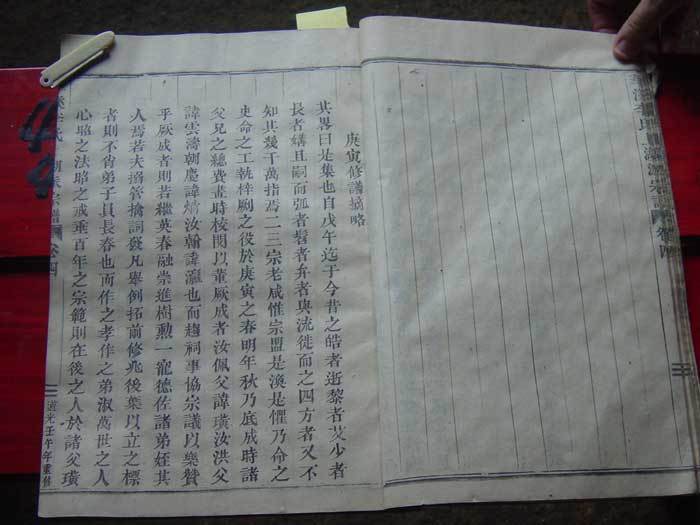 庚寅修譜摘略
其畧曰是集也自戊午迄于今昔之皓者逝黎者艾少者
長者媾且嗣而弧者髫者弁者與流徙而之四方者又不
知其幾千萬指焉二三宗老咸惟宗盟是渙是懼乃命之
吏命之工執梓劂之役於庚寅之春明年秋乃底成時諸
父兄之總費畫時校閱以董厥成者汝佩父諱璜汝洪父
諱雲濤朝慶諱熺汝翰諱瀛也而趨祠事協宗議以樂贊
乎厥成者則若繼英春融崇進樹勲一寵德佐諸弟姪其
人焉若夫搦管摛詞發凡舉例拓前修兆後葉以立之標
者則不肖弟子員長春也而作之孝作之弟淑萬世之人
心昭之法昭之戒垂百年之宗範則在後之人於諸父璜
李氏
宗譜
卷四
三
道光壬午年重修
李氏
卷四
三